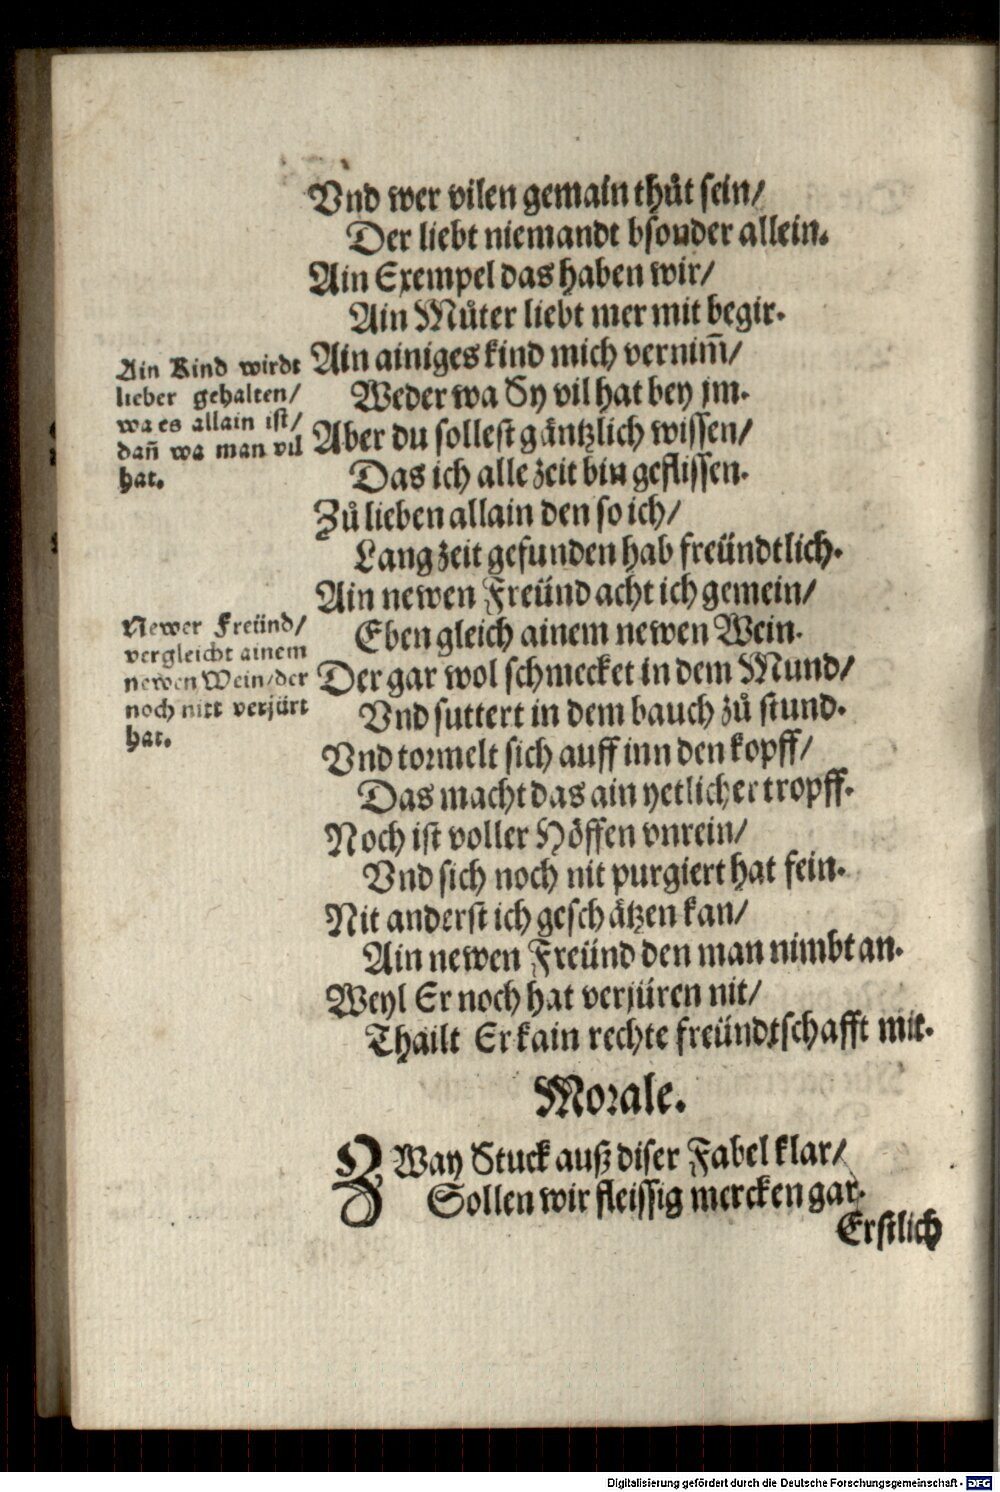 Vnd wer vilen gemain thůt sein/
Der liebt niemandt bsonder allein.
Ain Exempel das haben wir/
Ain Můter liebt mer mit begir.
Ain ainiges kind mich vernim̄/
Weder wa Sy vil hat bey jm.
Aber du sollest gäntzlich wissen/
Das ich alle zeit bin geflissen.
Zů lieben allain den so ich/
Lang zeit gefunden hab freündtlich.
Ain newen Freünd acht ich gemein/
Eben gleich ainem newen Wein.
Der gar wol schmecket in dem Mund/
Vnd suttert in dem bauch zů stund.
Vnd tormelt sich auff inn den kopff/
Das macht das ain yetlicher tropff.
Noch ist voller Höffen vnrein/
Vnd sich noch nit purgiert hat fein.
Nit anderst ich geschätzen kan/
Ain newen Freünd den man nimbt an.
Weyl Er noch hat verjüren nit/
Thailt Er kain rechte freündtschafft mit.
Ain Kind wirdt
lieber gehalten/
wa es allain ist/
dañ wa man vil
hat.
Newer Freünd/
vergleicht ainem
newen Wein/der
noch nitt verjürt
hat.
Morale.
ZWay Stuck auß diser Fabel klar/
Sollen wir fleissig mercken gar.
Erstlich
Digitalisierung gefördert durch die Deutsche Forschungsgemeinschaft - DFG